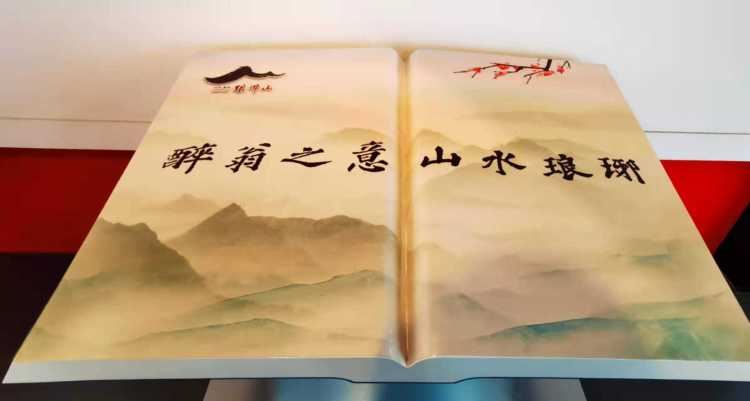 琅琊山
醉翁之意山水琅琊